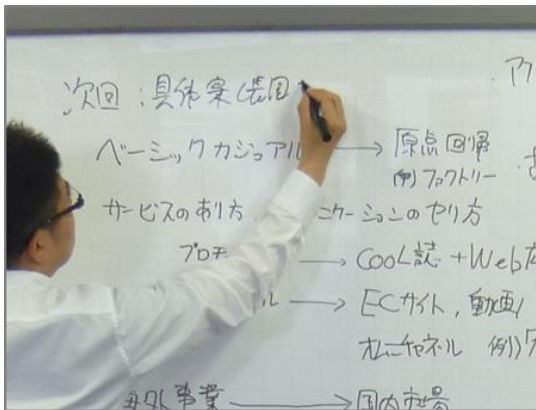 次回：具体案（表因
ア
ベーシックカジュアル → 原点回帰
例）ファクトリー
サービスのあり方 ニケーションのやり方
プロモ → COOL誌+Web
ル → ECサイト, 動画
オムニチャネル 例）
海外事業 → 国内市場